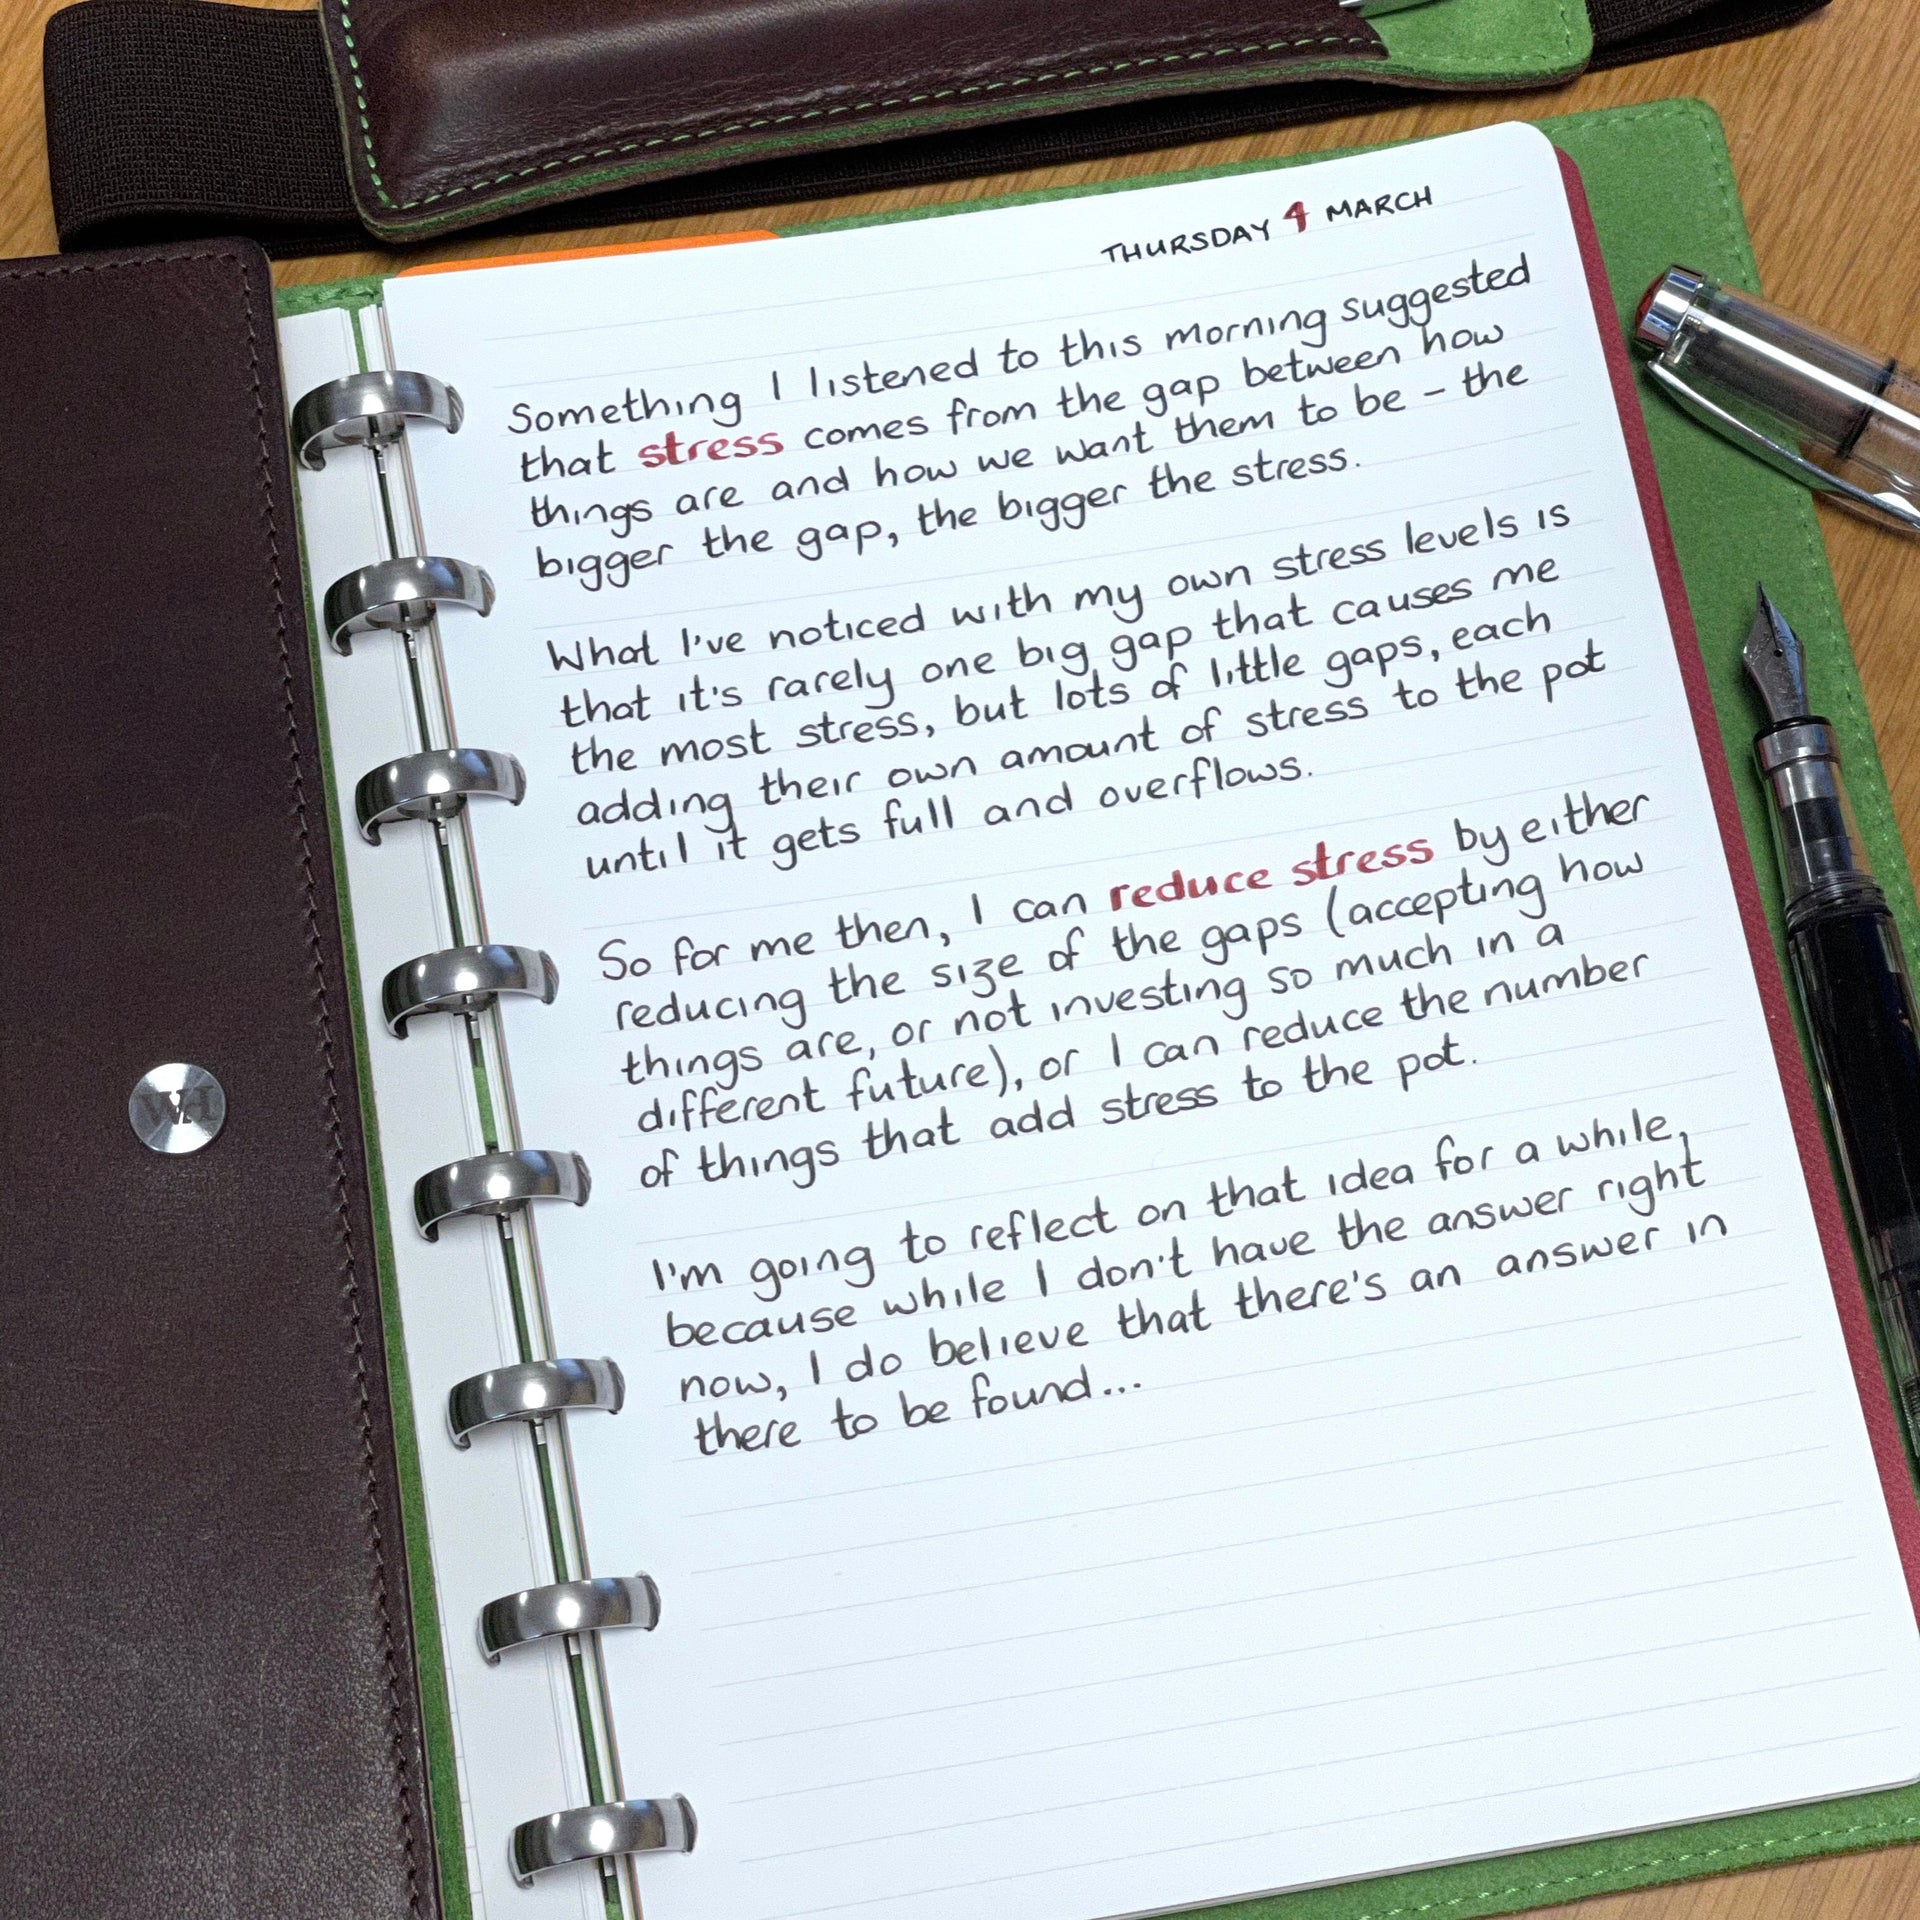 THURSDAY 4 MARCH
Something I listened to this morning suggested
that stress comes from the gap between how
things are and how we want them to be - the
bigger the gap, the bigger the stress.
What I've noticed with my own stress levels is
that it's rarely one big gap that causes me
the most stress, but lots of little gaps, each
adding their own amount of stress to the pot
until it gets full and overflows.
So for me then, I can reduce stress by either
reducing the size of the gaps (accepting how
things are, or not investing so much in a
different future), or I can reduce the number
of things that add stress to the pot.
I'm going to reflect on that idea for a while,
because while I don't have the answer right
now, I do believe that there's an answer in
there to be found...